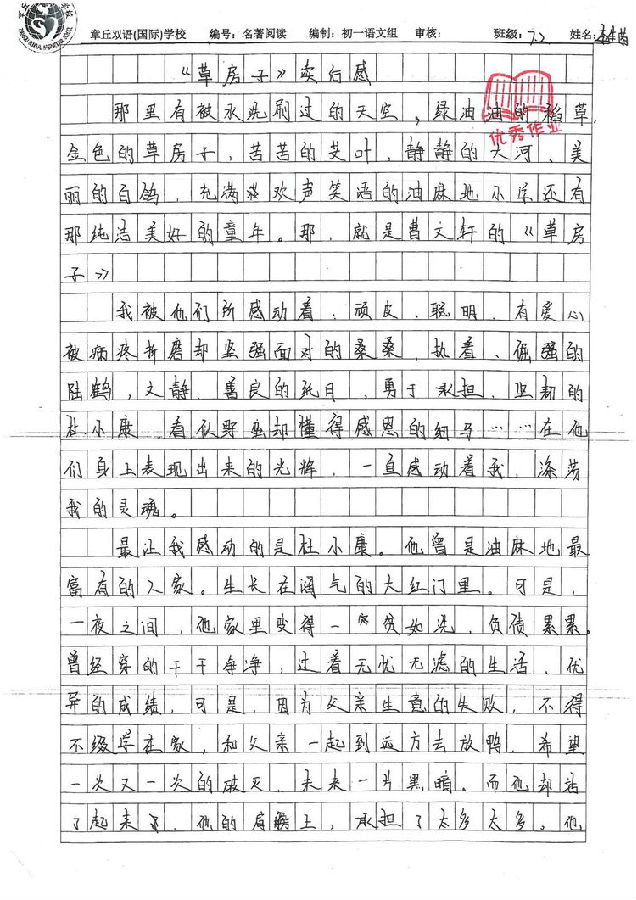 章丘双语(国际)学校 编号:名著阅读 编制:初一语文组 审核: 班级:7.2 姓名:
《草房子》读后感
优秀作业
那里有被水洗刷过的天空,绿油油的稻草、
金色的草房子,苦苦的艾叶,静静的大河、美
丽的白鸽,充满欢声笑语的油麻地小学还有
那纯洁美好的童年。那,就是曹文轩的《草房
子》
我被他们所感动着,顽皮、聪明、有爱心
被病疼折磨却坚强面对的桑桑,执着、倔强的
陆鹤,文静、善良的纸月,勇于承担,坚韧的
杜小康,看似野蛮却懂得感恩的细马……在他
们身上表现出来的光辉,一直感动着我,涤荡
我的灵魂。
最让我感动的是杜小康。他曾是油麻地最
富有的人家。生长在阔气的大红门里。可是,
一夜之间,他家里变得一贫如洗,负债累累。
曾经穿的干干净净,过着无忧无滤的生活,优
异的成绩,可是,因为父亲生意的失败,不得
不缀学在家,和父亲一起到远方去放鸭,希望
一次又一次的破灭,未来一片黑暗。而他却站
了起来了,他的肩膀上,承担了太多太多。他